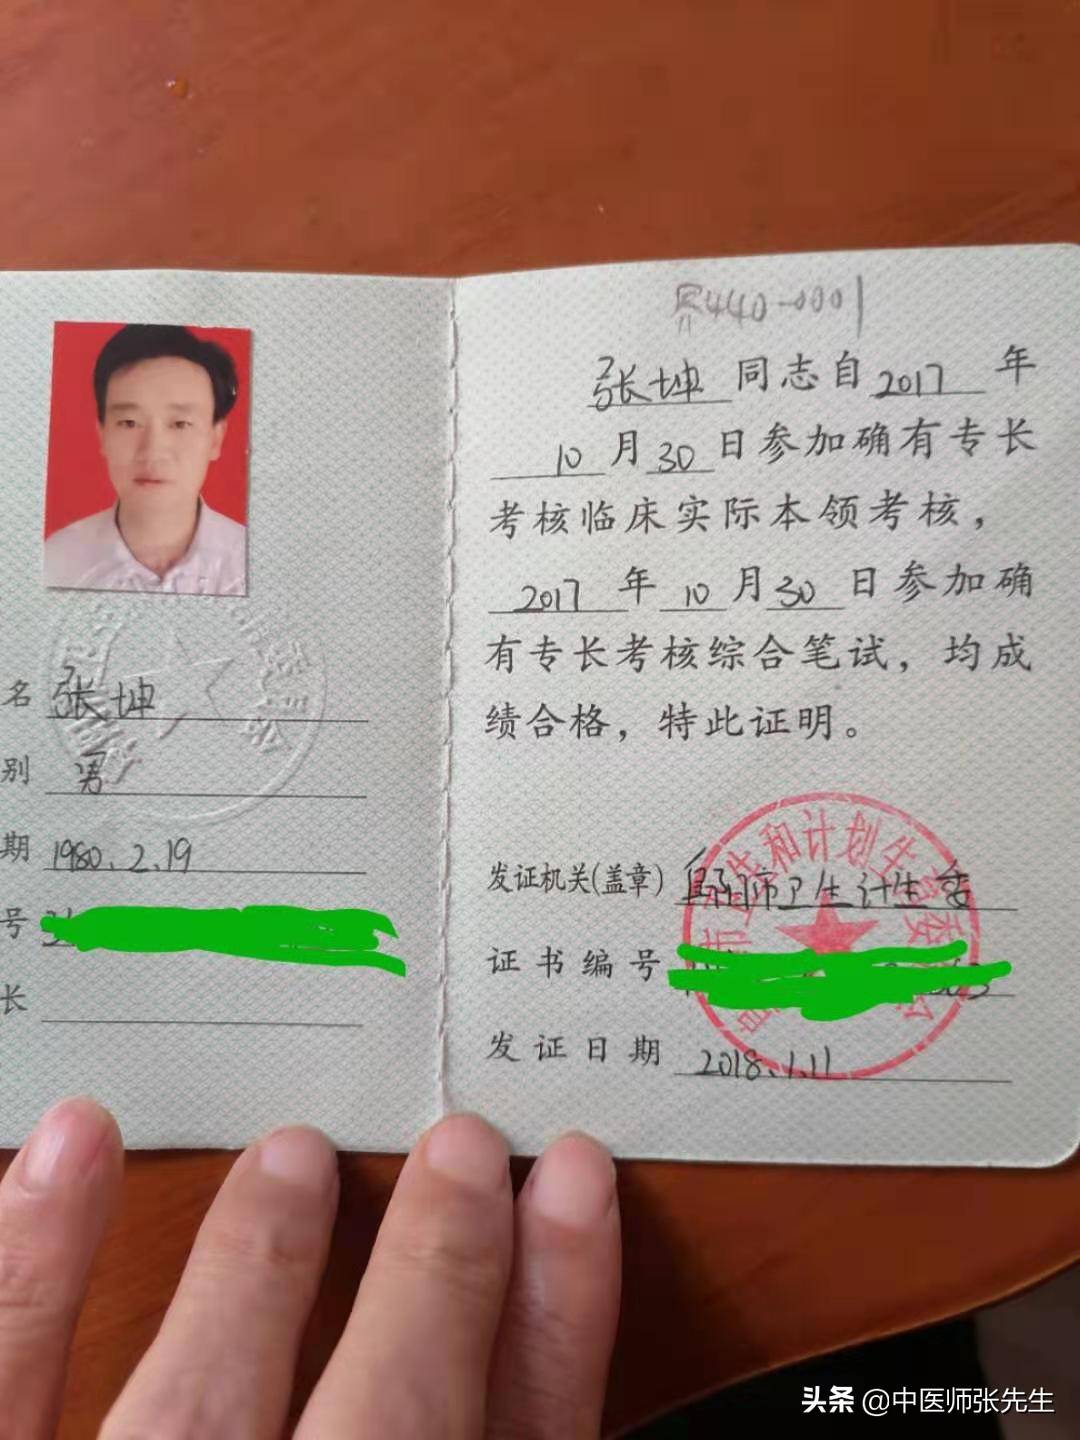 名 张坤
别 男
期 1980.2.19
号
长
440-0001
张坤 同志自 2017 年
10 月 30 日参加确有专长
考核临床实际本领考核，
2017 年 10 月 30 日参加确
有专长考核综合笔试，均成
绩合格，特此证明。
发证机关(盖章) 阳市卫生计生委
市卫生和计划生育委员会
证书编号
发证日期 2018.1.11
头条 @中医师张先生